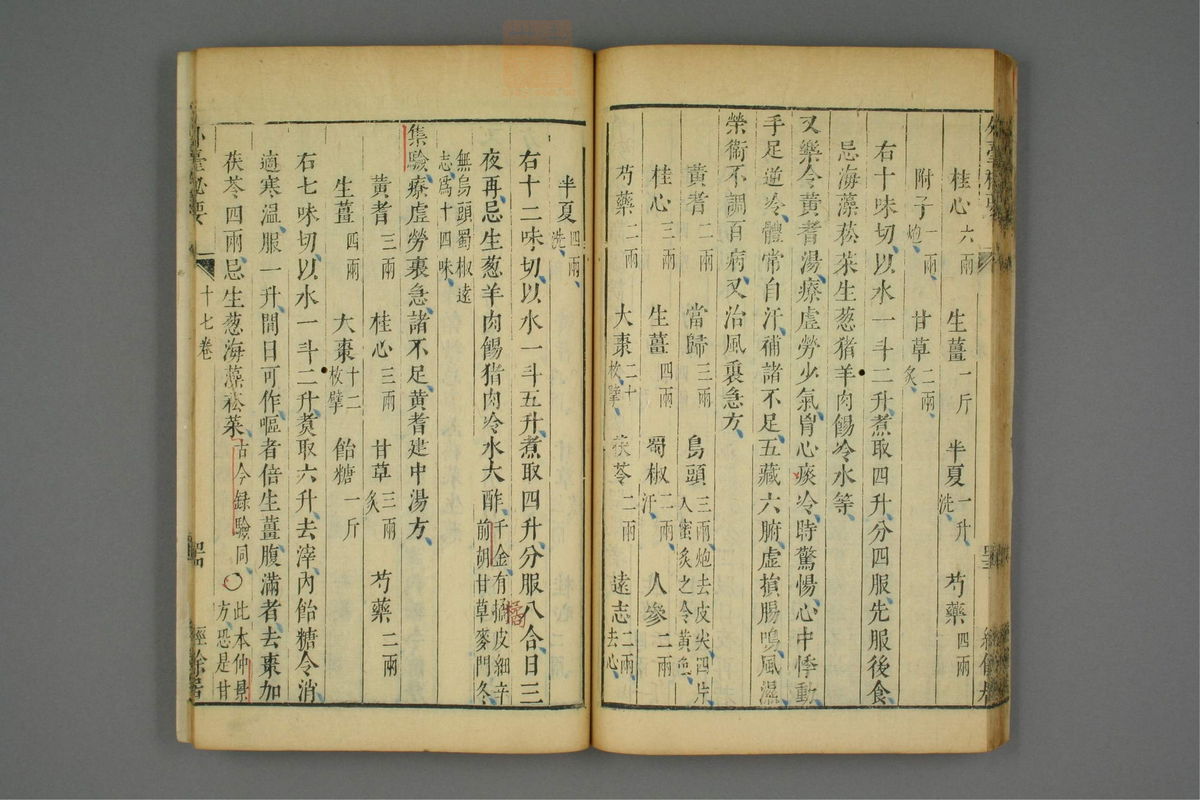 桂心六兩 生薑一斤 半夏一升洗 芍藥四兩
附子一兩炮 甘草二兩炙
右十味切以水一斗二升煮取四升分四服先服後食
忌海藻菘菜生葱猪羊肉餳冷水等
又樂令黃耆湯療虛勞少氣胷心痰冷時驚惕心中悸動
手足逆冷體常自汗補諸不足五藏六腑虛損腸鳴風濕
榮衞不調百病又治風裏急方
黃耆二兩 當歸三兩 烏頭三兩炮去皮尖四片入蜜炙之令黃色
桂心三兩 生薑四兩 蜀椒二兩汗 人參二兩
芍藥二兩 大棗二十枚擘 茯苓二兩 遠志二兩去心
半夏四兩洗
右十二味切以水一斗五升煮取四升分服八合日三
夜再忌生葱羊肉餳猪肉冷水大酢千金有橘皮細辛前胡甘草麥門冬
無烏頭蜀椒遠志爲十四味
集驗療虛勞裏急諸不足黃耆建中湯方
黃耆三兩 桂心三兩 甘草三兩炙 芍藥二兩
生薑四兩 大棗十二枚擘 飴糖一斤
右七味切以水一斗二升煑取六升去滓內飴糖令消
適寒溫服一升間日可作嘔者倍生薑腹滿者去棗加
茯苓四兩忌生葱海藻菘菜古今録驗同○此本仲景方恐是甘
外臺秘要 十七卷